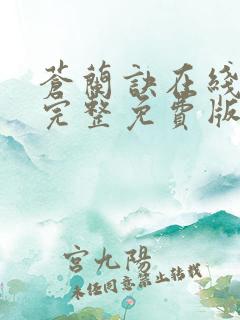 蒼蘭訣在綫
完整免費版
宮九陽
未经同意禁止转载